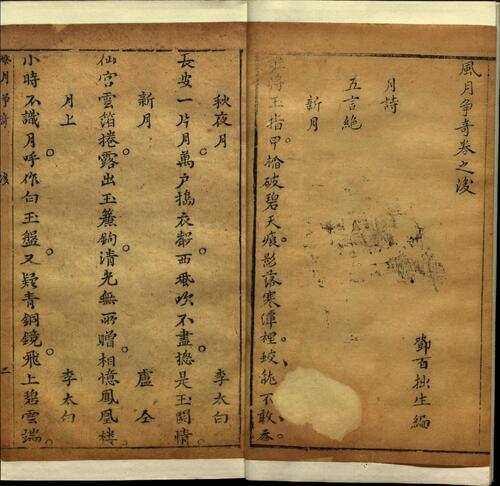 風月争奇卷之後
鄧百拙生編
月詩
五言絶
新月
將玉指甲搯破碧天痕影落寒潭裡蛟龍不敢吞
秋夜月 李太白
長安一片月萬户搗衣聲西風吹不盡總是玉関情
新月 盧仝
仙宮雲箔捲露出玉簾鈎清光無所贈相憶鳳凰樓
月上 李太白
小時不識月呼作白玉盤又疑青銅鏡飛上碧雲端
風月争奇 後 二